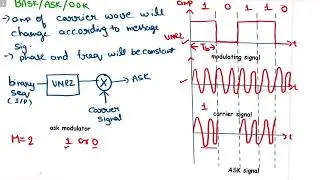 BASK/ASK/OOK
→ amp of carrier wave will
change according to message
sig
→ phase and freq will be constant
binary
seq
(I/P)
UNRZ
X
→ ASK
Carrier
signal
ask modulator
M=2
1 or 0
amp
1 0 1 1 0
UNRZ
Tb
t
modulating signal
t
carrier signal
1
t
ASK signal